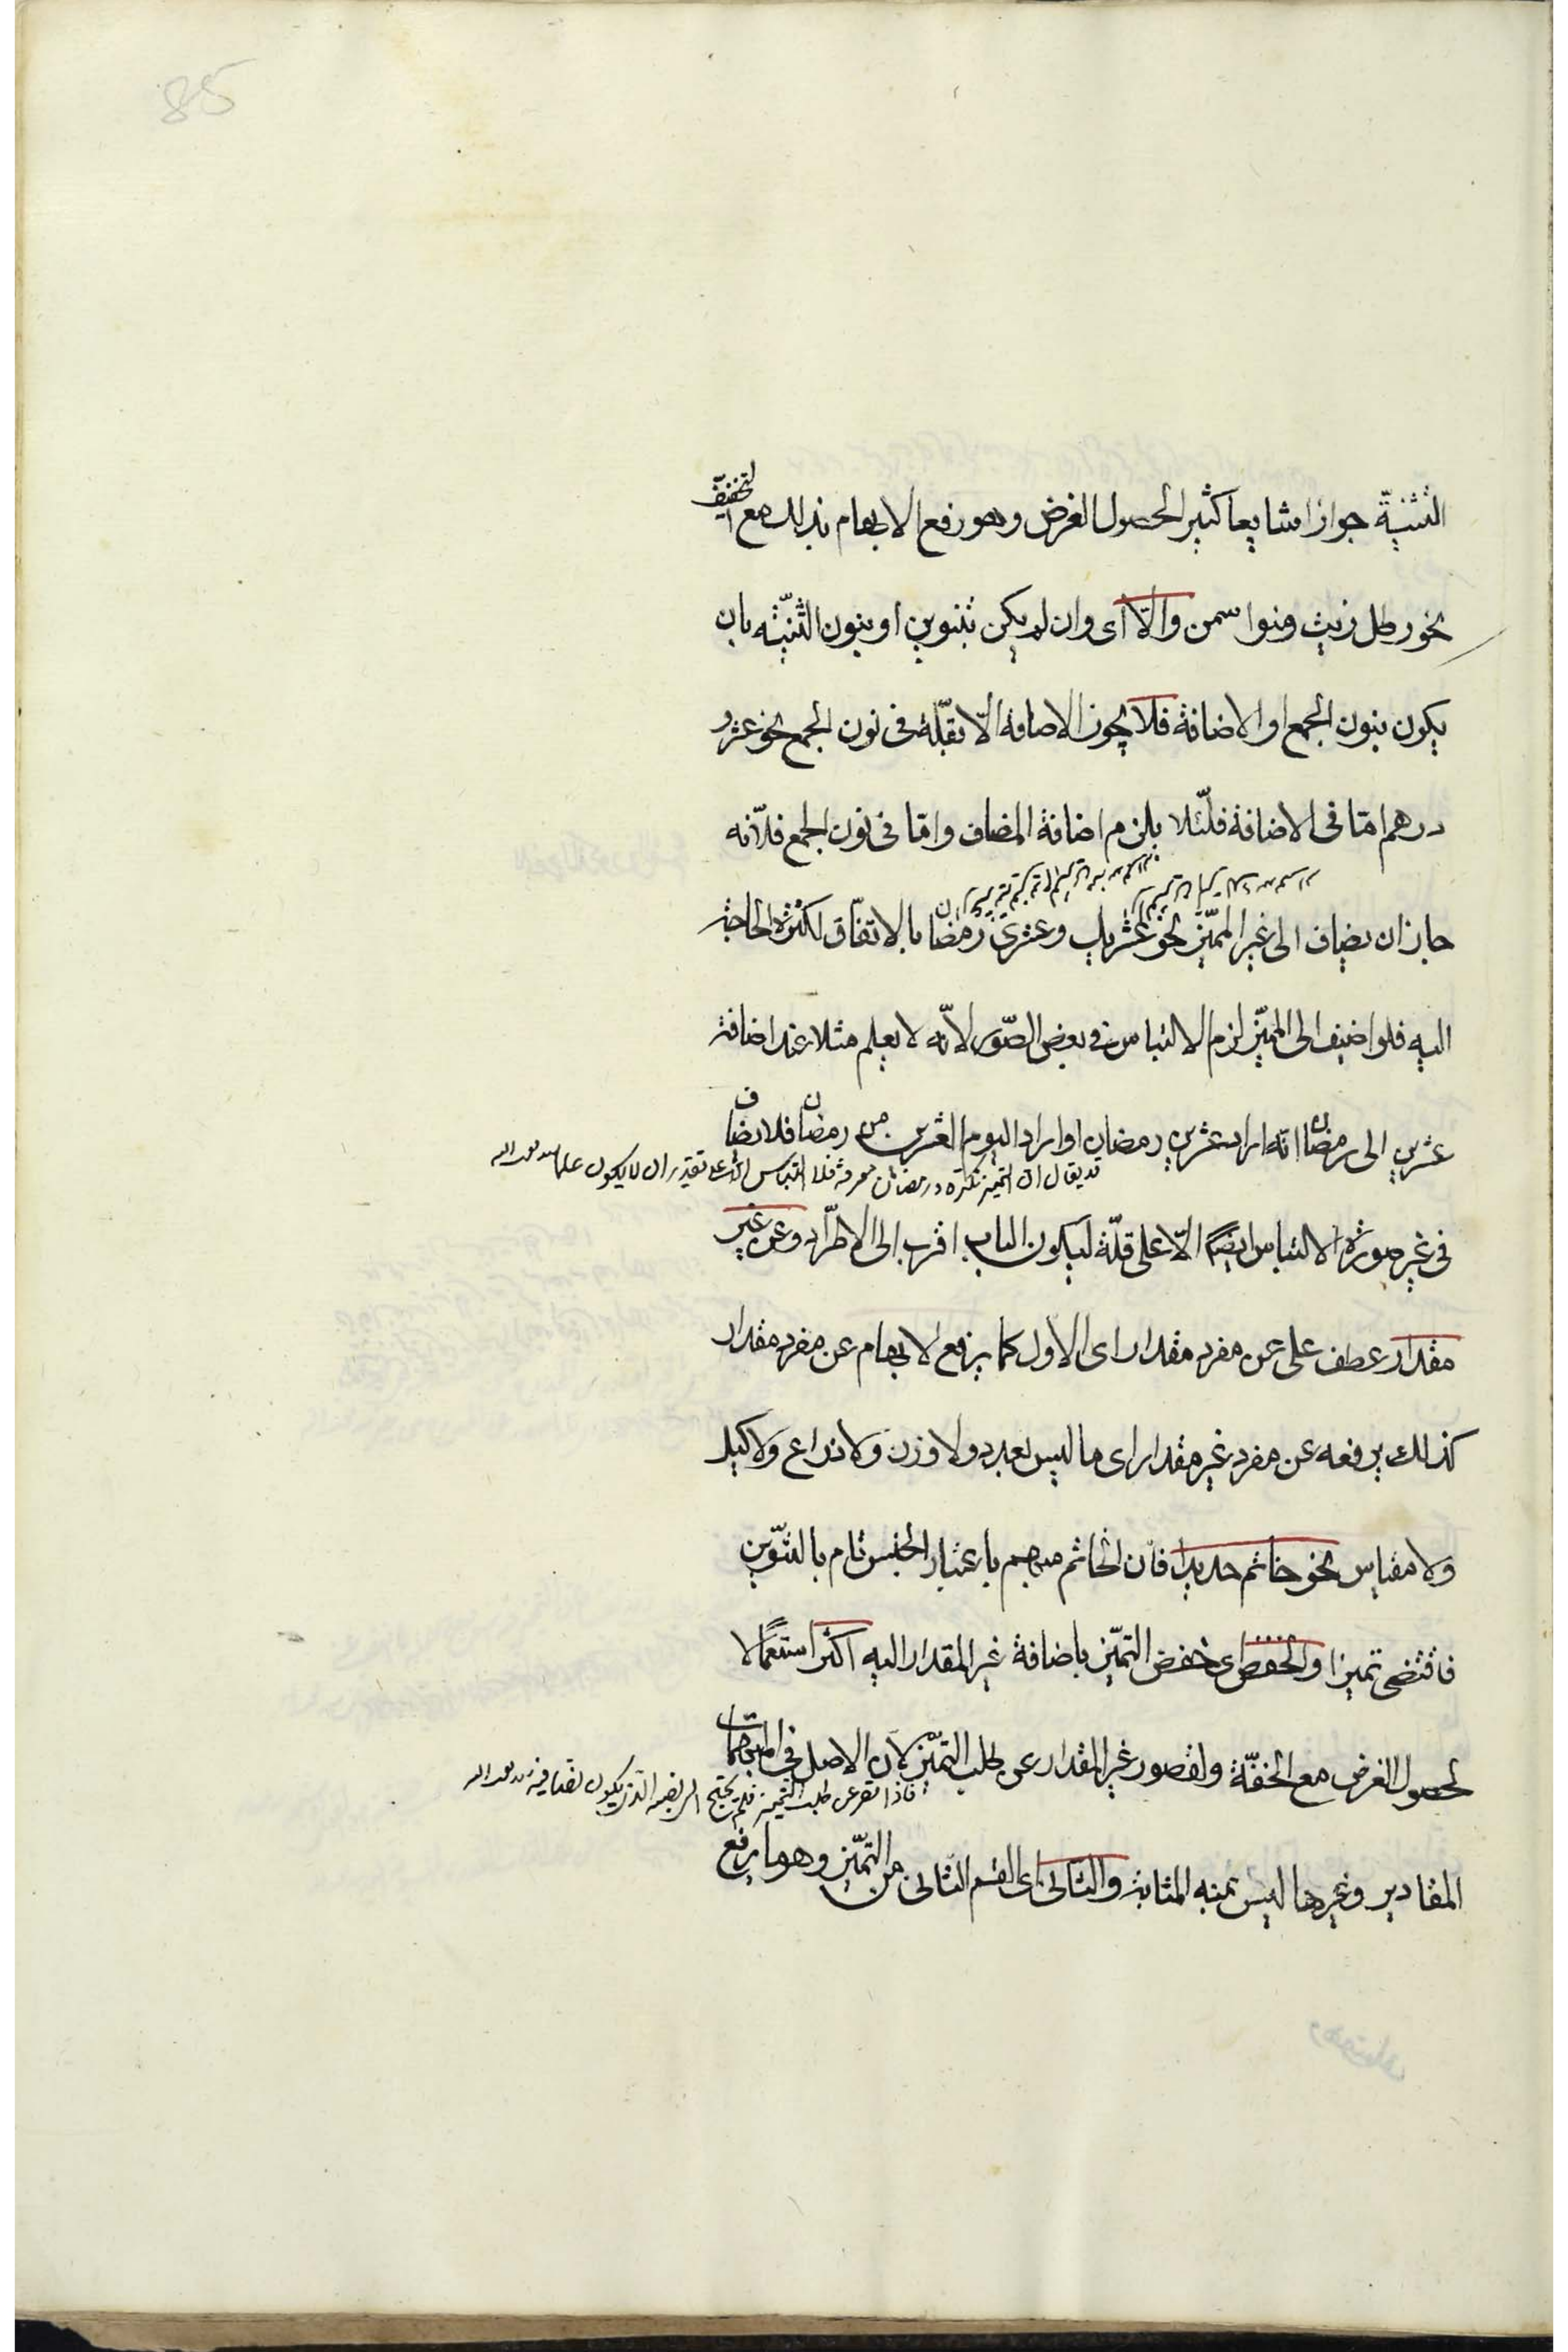 85
التثنية جوازا شايعا كثيرا لحصول الغرض وهو رفع الابهام بذلك مع التخفيف
نحو رطل زيت ومنوا سمن والّا اى وان لم يكن بتنوين او بنون التثنية بان
يكون بنون الجمع او الاضافة فلا يجوز الاضافة الّا بقلّة فى نون الجمع نحو عشرو
درهم امّا فى الاضافة فلئلّا يلزم اضافة المضاف وامّا فى نون الجمع فلانّه
جاز ان يضاف الى غير المميّز نحو عشريك وعشرى رمضان بالاتفاق لكثرة الحاجة
اليه فلو اضيف الى المميّز لزم الالتباس فى بعض الصّور لانّه لا يعلم مثلا عند اضافة
عشرين الى رمضان انّه اراد عشرين رمضان او اراد اليوم العشرين من رمضان فلا يضاف
قد يقال ان التميز نكرة ورمضان معرفة فلا التباس الا على تقدير ان لا يكون علما
فى غير صورة الالتباس ايضًا الّا على قلّة ليكون الباب اقرب الى الاطّراد وعن غير
مقدار عطف على عن مفرد مقدار اى الاول كما يرفع الابهام عن مفرد مقدار
كذلك يرفعه عن مفرد غير مقدار اى ما ليس بعدد ولا وزن ولا ذراع ولا كيل
ولا مقياس نحو خاتم حديدا فانّ الخاتم مبهم باعتبار الجنس تام بالتنوين
فاقتضى تميزا والخفض اى خفض التميّز باضافة غير المقدار اليه اكثر استعمالا
لحصول الغرض مع الخفّة ولقصور غير المقدار عن طلب التميّز لان الاصل فى المبهمات
فاذا قصر عن طلب التميز فلم يحتج الى نصبه الذى يكون نصا فيه
المقادير وغيرها ليس بهذه المثابة والثانى اى القسم الثانى من التميّز وهو ما يرفع